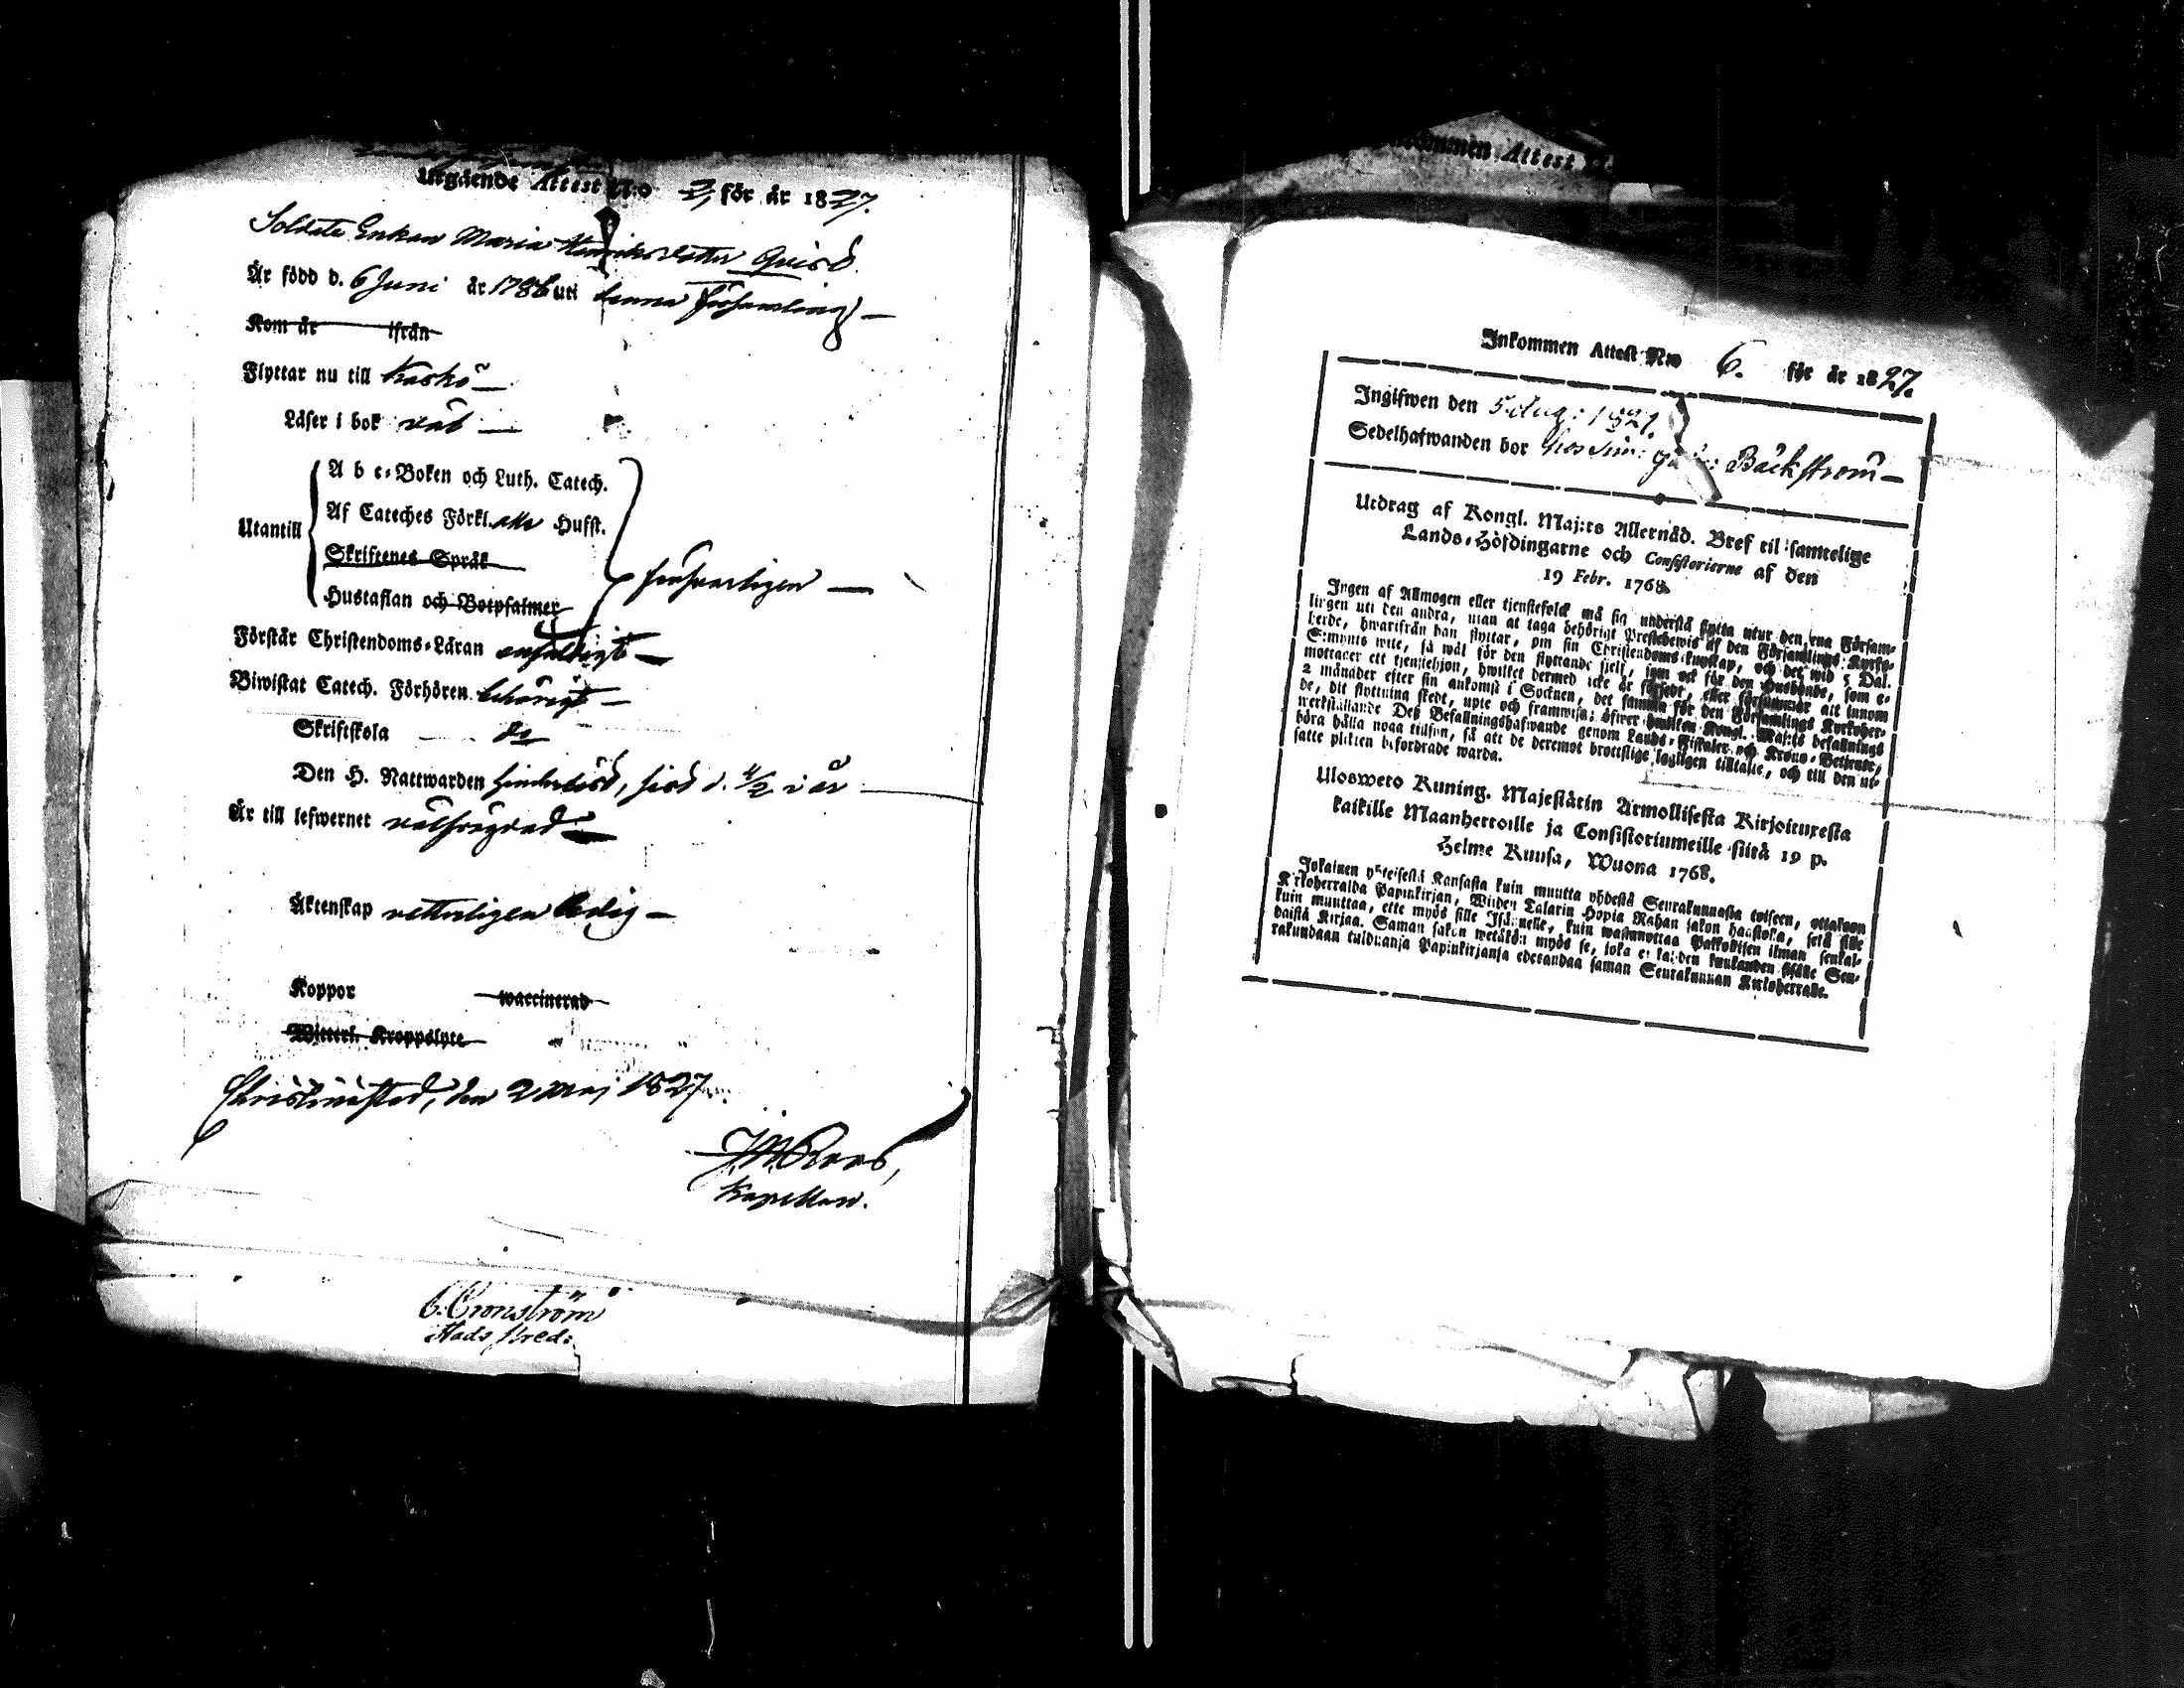 Utgående Attest N:o 2, för år 1827.
Soldats Enkan Maria Henriksdotter Qvist
Är född d. 6 Juni år 1786 uti denna Församling —
Kom år ifrån
Flyttar nu till Kaskö —
Läser i bok väl —
A b c-Boken och Luth. Catech.
Af Cateches Förkl. Hufst.
Utantill
Skriftenes Språk
Hustaflan och Botpsalmer
försvarligen —
Förstår Christendoms-Läran enfaldigt —
Biwistat Catech. Förhören behörigt —
Skriftskola do
Den H. Nattwarden sist d. 4/2 i år
Är till lefwernet välfrägdad —
Äktenskap vetterligen ledig —
Koppor waccinerad
Witterl. Kroppslyte
Christinestad, den 2 Maj 1827.
Kapellan.
C. Cronström
Inkommen Attest N:o
Inkommen Attest N:o 6. för år 1827.
Ingifwen den 5 Aug: 1827.
Sedelhafwanden bor hos Bäckström —
Utdrag af Kongl. Maj:ts Allernåd. Bref til samtelige
Lands-Höfdingarne och Consistorierne af den
19 Febr. 1768.
Ingen af Allmogen eller tjenstefolck må sig understå flytta utur den ena Försam-
lingen uti den andra, utan at taga behörigt Prestebewis af den Församlings Kyrko-
herde, hwarifrån han flyttar, om sin Christendoms kunskap, och det wid 5 Dal.
S:mynts wite, så wäl för den flyttande sjelf, som ock för den Husbonde, som e-
mottager ett tjenstehjon, hwilket dermed icke är försedt, eller försummar att innom
2 månader efter sin ankomst i Socknen, det samma för den Församlings Kyrkoher-
de, dit flyttning skedt, upte och framwisa; öfwer hwilken Kongl. Maj:ts befallnings
werkställande Deß Befallningshafwande genom Lands-Fiskaler och Krono-Betjente,
böra hålla noga tillsyn, så att de deremot brottslige lagligen tilltalte, och till den ut-
satte plikten befordrade warda.
Ulosweto Kuning. Majestätin Armollisesta Kirjoituxesta
kaikille Maanherroille ja Consistoriumeille siitä 19 p.
Helme Kuusa, Wuona 1768.
Jokainen yhteisestä Kansasta kuin muutta yhdestä Seurakunnasta toiseen, ottakoon
Kirkoherralda Papinkirjan, Wiiden Talarin Hopia Rahan sakon haastolla, sekä sille
kuin muuttaa, ette myös sille Isännelle, kuin wastanottaa Palkollisen ilman senkal-
daistä Kirjaa. Saman sakon wetäkön myös se, joka ei kahden kuukauden sisälle Seu-
rakundaan tulduanja Papinkirjansa edesandaa saman Seurakunnan Kirkoherralle.